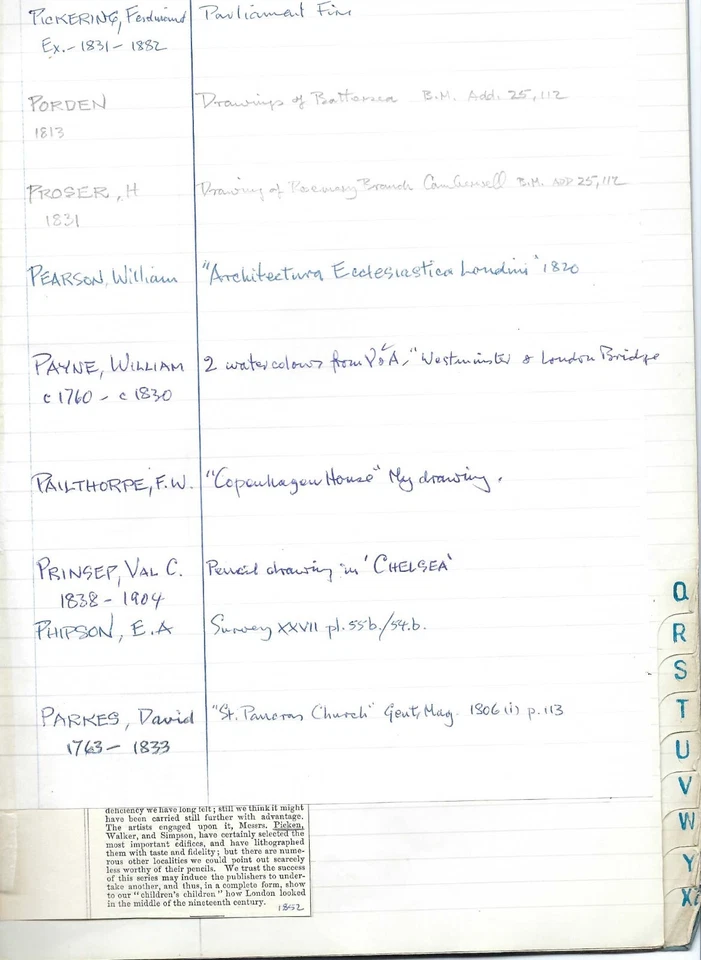 PICKERING, Ferdinand Parliament Fire
Ex. - 1831 - 1882
PORDEN Drawings of Battersea B.M. Add. 25,112
1813
PROSER, H Drawing of Rosemary Branch Camberwell B.M. ADD 25,112
1831
PEARSON, William "Architectura Ecclesiastica Londini" 1820
PAYNE, WILLIAM 2 watercolours from V&A - "Westminster & London Bridge
c 1760 - c 1830
PAILTHORPE, F.W. "Copenhagen House" My drawing.
PRINSEP, VAL C. Pencil drawing in 'CHELSEA'
1838 - 1904
PHIPSON, E.A Survey XXVII pl. 55b./54.b.
PARKES, David "St. Pancras Church" Gent. Mag. 1806 (i) p. 113
1763 - 1833
deficiency we have long felt; still we think it might
have been carried still further with advantage.
The artists engaged upon it, Messrs. Picken,
Walker, and Simpson, have certainly selected the
most important edifices, and have lithographed
them with taste and fidelity; but there are nume-
rous other localities we could point out scarcely
less worthy of their pencils. We trust the success
of this series may induce the publishers to under-
take another, and thus, in a complete form, show
to our "children's children" how London looked
in the middle of the nineteenth century.
1852
Q
R
S
T
U
V
W
Y
X